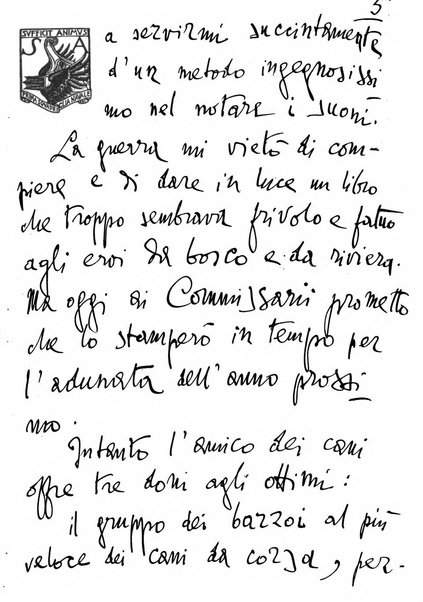 5
SVFFICIT ANIMVS
S A
a servirmi succintamente
d'un metodo ingegnosissi
mo nel notare i suoni.
La guerra mi vietò di com-
piere e di dare in luce un libro
che troppo sembrava frivolo e fatuo
agli eroi da bosco e da riviera.
Ma oggi ai Commissarii prometto
che lo stamperò in tempo per
l'adunata dell'anno prossi
mo.
Intanto l'amico dei cani
offre tre doni agli ottimi:
il gruppo dei barzoi al più
veloce dei cani da corsa, per-